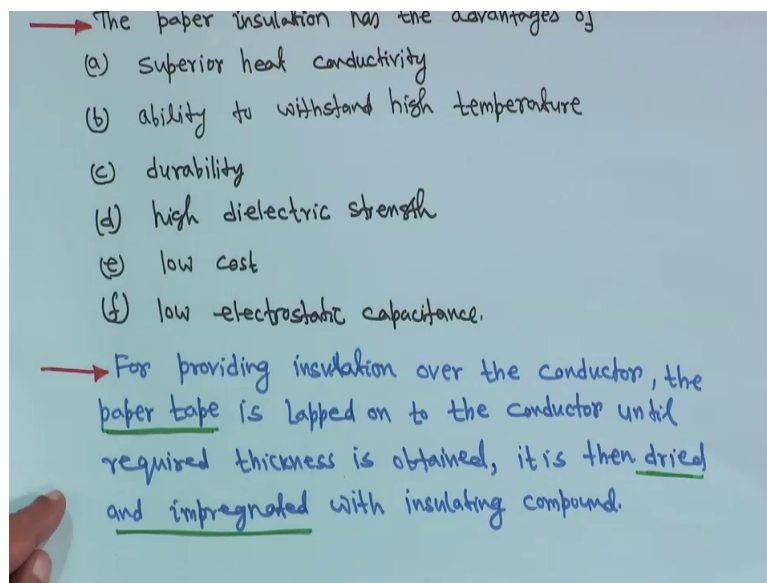 The paper insulation has the advantages of
(a) superior heat conductivity
(b) ability to withstand high temperature
(c) durability
(d) high dielectric strength
(e) low cost
(f) low electrostatic capacitance.
For providing insulation over the conductor, the
paper tape is lapped on to the conductor until
required thickness is obtained, it is then dried
and impregnated with insulating compound.